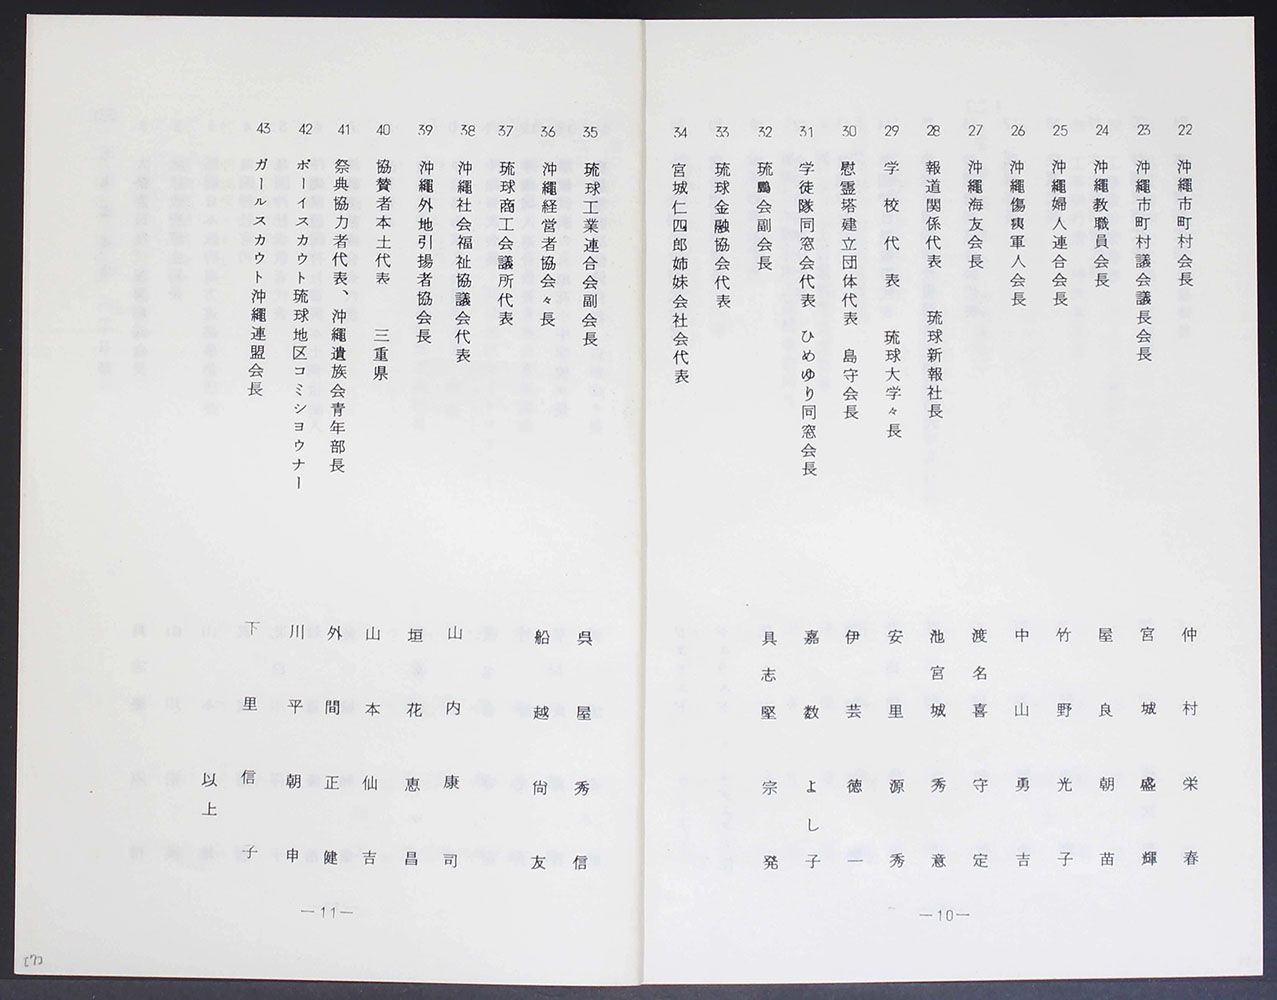 22 沖縄市町村会長 仲村栄春
23 沖縄市町村議会議長会長 宮城盛輝
24 沖縄教職員会長 屋良朝苗
25 沖縄婦人連合会長 竹野光子
26 沖縄傷痍軍人会長 中山勇吉
27 沖縄海友会長 渡名喜守定
28 報道関係代表 琉球新報社長 池宮城秀意
29 学校代表 琉球大学々長 安里源秀
30 慰霊塔建立団体代表 島守会長 伊芸徳一
31 学徒隊同窓会代表 ひめゆり同窓会長 嘉数よし子
32 琉鵬会副会長 具志堅宗発
33 琉球金融協会代表
34 宮城仁四郎姉妹会社会代表
—10—
35 琉球工業連合会副会長 呉屋秀信
36 沖縄経営者協会々長 船越尚友
37 琉球商工会議所代表
38 沖縄社会福祉協議会代表 山内康司
39 沖縄外地引揚者協会長 垣花恵昌
40 協賛者本土代表 三重県 山本仙吉
41 祭典協力者代表、沖縄遺族会青年部長 外間正健
42 ボーイスカウト琉球地区コミシヨウナー 川平朝申
43 ガールスカウト沖縄連盟会長 下里信子
以上
—11—